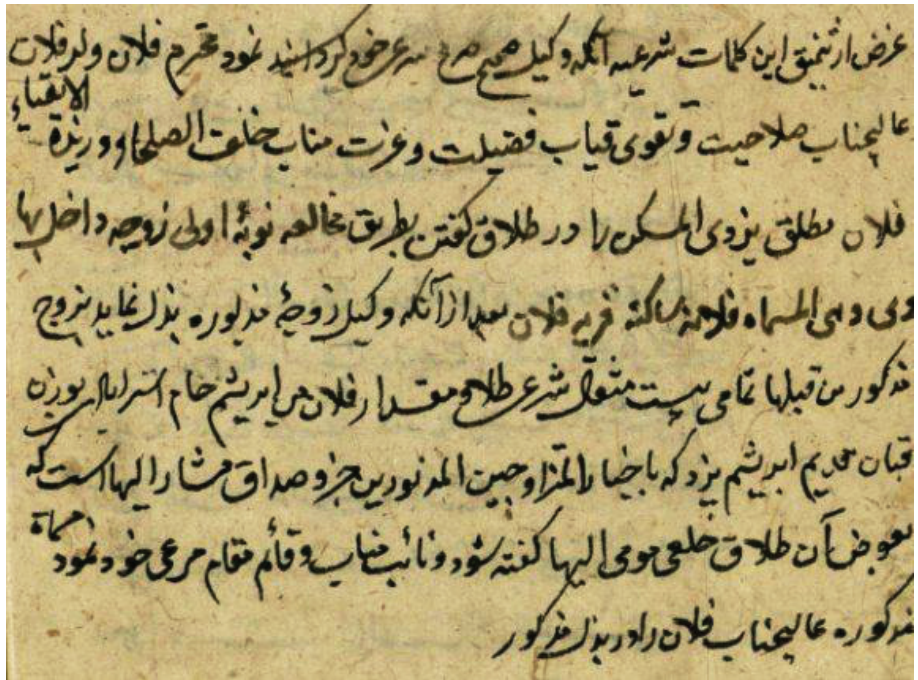 غرض از تنمیق این کلمات شرعیه آنکه وکیل صحیح صریح شرعی خود گردانید نمود محترم فلان ولد فلان
عالیجناب صلاحیت و تقوی قباب فضیلت و عزت مناب خلف الصلحاء و زبدة الاتقیاء
فلان مطلق یزدی المسکن را در طلاق گفتن بطریق مخالعه نوبهٔ اولی زوجه داخل بها
وی وهی المسماه فلانه ساکنه قریه فلان بعد از آنکه وکیل زوجهٔ مذکوره بذل نماید بزوج
مذکور من قبلها تمامی بیست مثقال شرعی طلا و مقدار فلان من ابریشم خام استرابادی بوزن
قبان قدیم ابریشم یزد که باخبار المتزاوجین المذبورین جزو صداق مشار الیها است که
بعوض آن طلاق خلعی مومی الیها گفته شود و نائب مناب و قائم مقام مرعی خود نمود مسماة
مذکوره عالیجناب فلان را در بذل مذکور